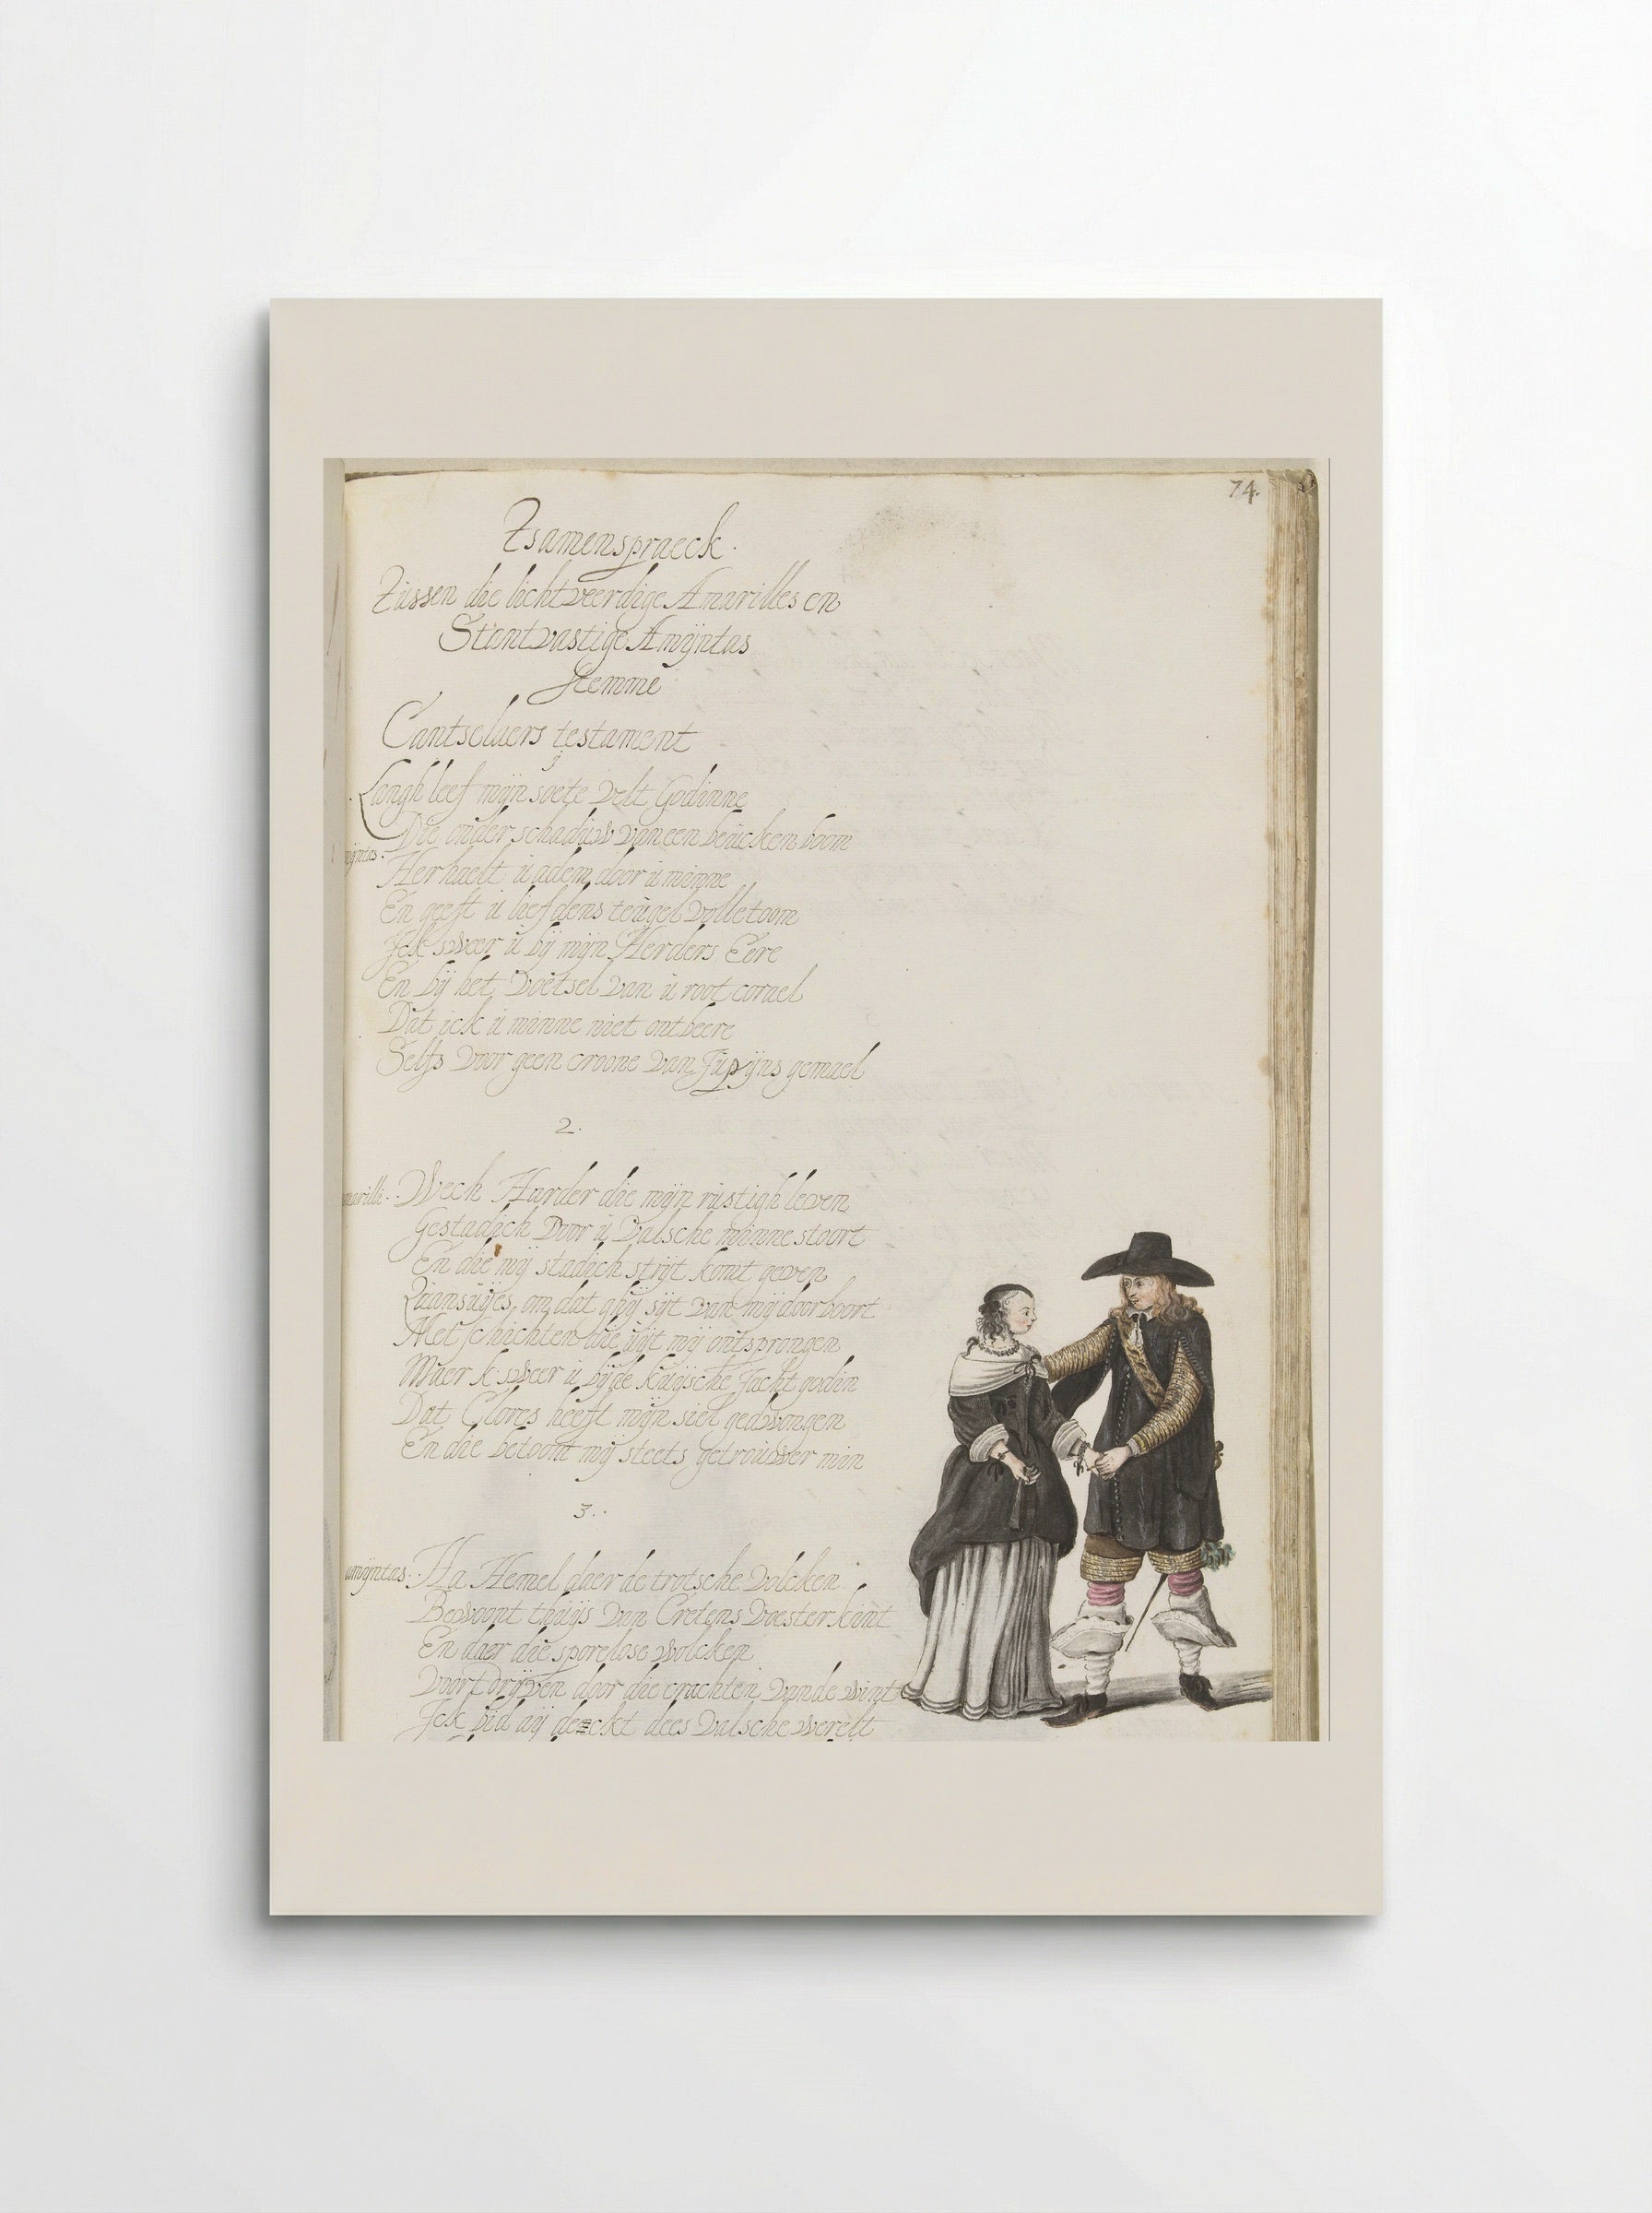 74.
Tsamenspraeck.
Tussen die lichtveerdige Amarilles en
Stantvastige Amÿntas
Stemme
Cantselaers testament
Langh leef mijn soete Velt Godinne
Die onder schaduw van een beucken boom
mÿntas.
Herhaelt u adem door u minne
En geeft u liefdens teugel volle toom
Ick sweer u bij mijn Herders Eere
En bij het voetsel van u root corael
Dat ick u minne niet ontbeere
Selfs voor geen croone van Jupijns gemael
2.
marilli. Wech Harder die mijn rustigh leven
Gestadich door u valsche minne stoort
En die mij stadich strijt komt geven
om dat ghij sijt van mij doorboort
Met schichten die uijt mij ontsprongen
Maer k sweer u bij de kuijsche Jacht godin
Dat Clores heeft mijn siel gedwongen
En die betoont mij steets getrouwer min
3.
amÿntas. Ha Hemel daer de trotsche volcken
Bewoont thuijs van Cretens voesterkint
En daer die sporelose wolcken
Voort drijven door die crachten vande wint
Ick bid aij deckt dees valsche werelt